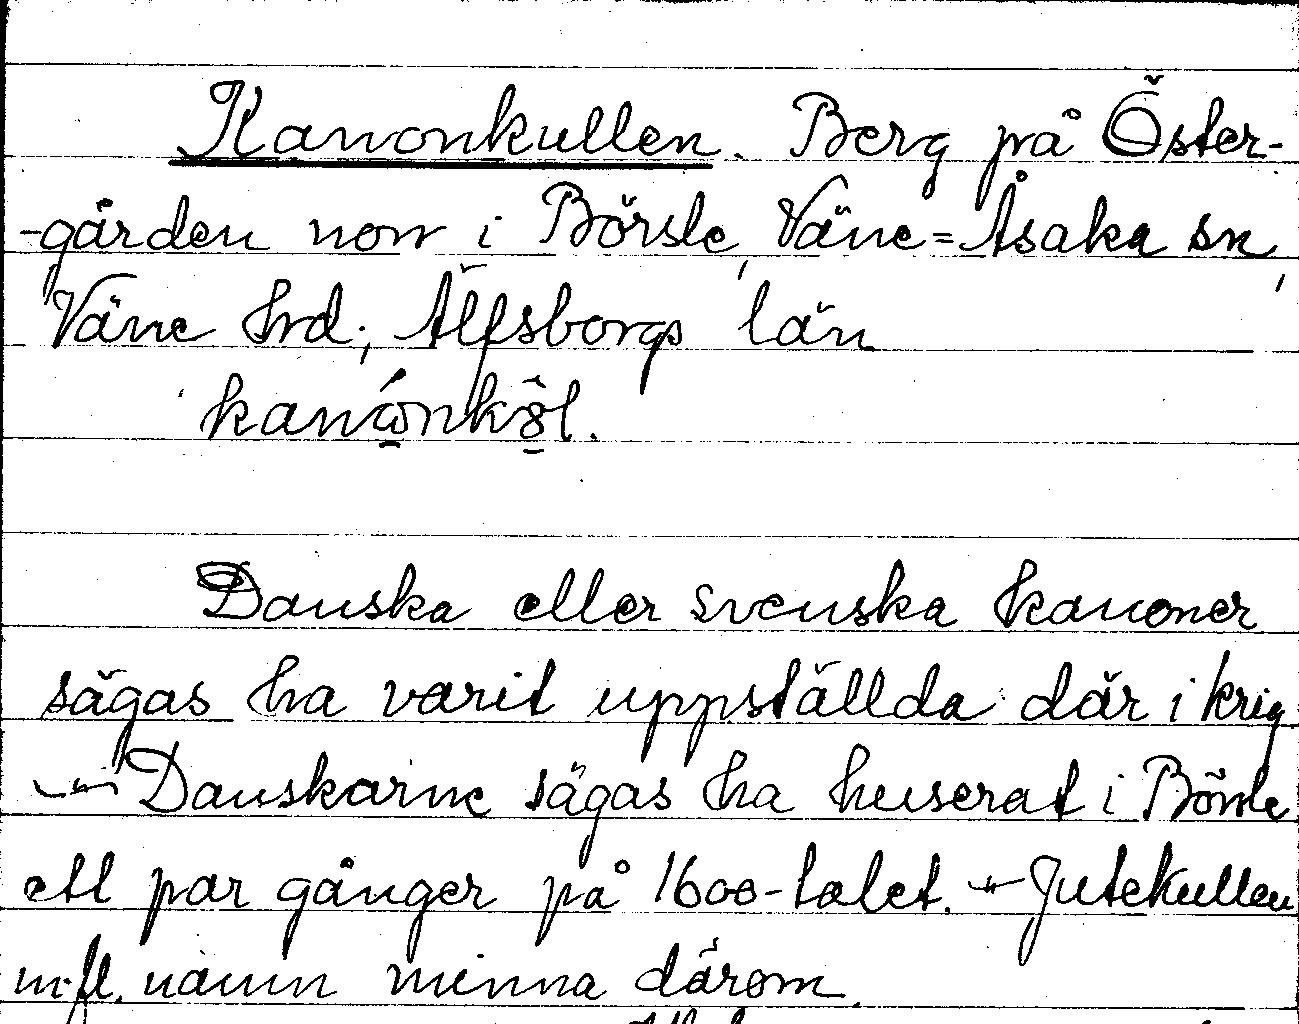 Kanonkullen. Berg på Öster-
-gården norr i Börsle, Väne=Åsaka sn,
Väne hrd; Älfsborgs län
kanónköl.
Danska eller svenska kanoner
sägas ha varit uppställda där i krig
– " – Danskarne sägas ha huserat i Börsle
ett par gånger på 1600-talet. – " – Jutekullen
m.fl. namn minna därom.